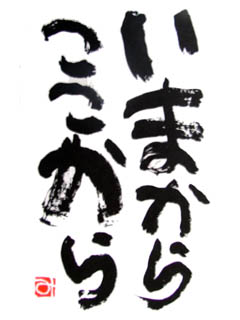 いまから
ここから